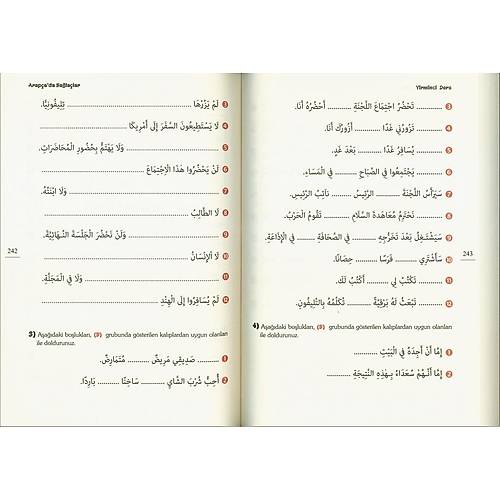 Arapça'da Bağlaçlar
❸ لَمْ يَزُرْهَا .................... تِلِيفُونِيًّا.
❹ لَا يَسْتَطِيعُونَ السَّفَرَ إِلَى أَمْرِيكَا ....................
❺ .................... وَلَا يَهْتَمُّ بِحُضُورِ الْمُحَاضَرَاتِ.
❻ لَنْ يَحْضُرُوا هَذَا الْاِجْتِمَاعَ ....................
❼ .................... وَلَا ابْنَتُهُ.
❽ لَا الطَّالِبُ ....................
❾ .................... وَلَنْ نَحْضُرَ الْجَلْسَةَ النِّهَائِيَّةَ.
❿ لَا الْإِنْسَانُ ....................
⓫ .................... وَلَا فِي الْمَجَلَّةِ.
⓬ لَمْ يُسَافِرُوا إِلَى الْهِنْدِ ....................
3) Aşağıdaki boşlukları, (3) grubunda gösterilen kalıplardan uygun olanları
ile doldurunuz.
❶ .......... صَدِيقِي مَرِيضٌ .......... مُتَمَارِضٌ.
❷ أُحِبُّ شُرْبَ الشَّايِ .......... سَاخِنًا .......... بَارِدًا.
242
Yirminci Ders
❸ .......... تَحْضُرُ اجْتِمَاعَ اللَّجْنَةِ .......... أَحْضُرُهُ أَنَا.
❹ .......... تَزُورُنِي غَدًا .......... أَزُورُكَ أَنَا.
❺ .......... يُسَافِرُ غَدًا .......... بَعْدَ غَدٍ.
❻ .......... يَجْتَمِعُوا فِي الصَّبَاحِ .......... فِي الْمَسَاءِ.
❼ سَيَرْأَسُ اللَّجْنَةَ .......... الرَّئِيسُ .......... نَائِبُ الرَّئِيسِ.
❽ .......... نَحْتَرِمُ مُعَاهَدَةَ السَّلَامِ .......... تَقُومُ الْحَرْبُ.
❾ سَيَشْتَغِلُ بَعْدَ تَخَرُّجِهِ .......... فِي الصَّحَافَةِ .......... فِي الْإِذَاعَةِ.
❿ سَأَشْتَرِي .......... فَرَسًا .......... حِصَانًا.
⓫ .......... تَكْتُبُ لِي .......... أَكْتُبُ لَكَ.
⓬ .......... تَبْعَثُ لَهُ بَرْقِيَّةً .......... تُكَلِّمُهُ بِالتِّلِيفُونِ.
4) Aşağıdaki boşlukları, (3) grubunda gösterilen kalıplardan uygun olanları
ile doldurunuz.
❶ إِمَّا أَنْ أَجِدَهُ فِي الْبَيْتِ ....................
❷ إِمَّا أَنَّهُمْ سُعَدَاءُ بِهَذِهِ النَّتِيجَةِ ....................
243